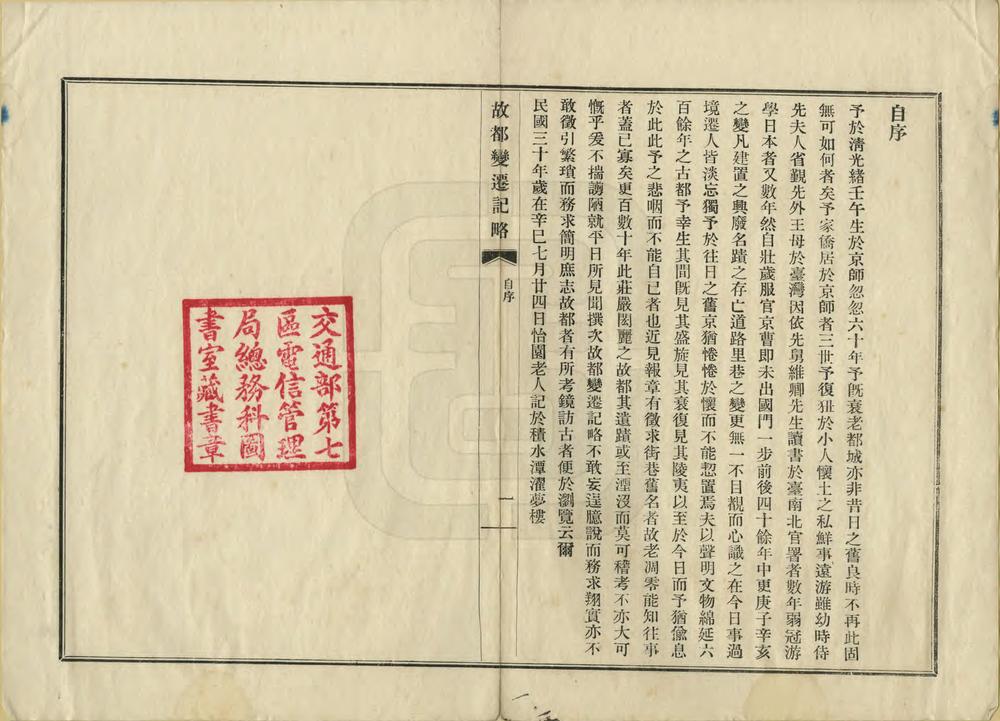 自序
予於清光緒壬午生於京師忽忽六十年予旣衰老都城亦非昔日之舊良時不再此固
無可如何者矣予家僑居於京師者三世予復狃於小人懷土之私鮮事遠游雖幼時侍
先夫人省覲先外王母於臺灣因依先舅維卿先生讀書於臺南北官署者數年弱冠游
學日本者又數年然自壯歲服官京曹即未出國門一步前後四十餘年中更庚子辛亥
之變凡建置之興廢名蹟之存亡道路里巷之變更無一不目覩而心識之在今日事過
境遷人皆淡忘獨予於往日之舊京猶惓惓於懷而不能恝置焉夫以聲明文物綿延六
百餘年之古都予幸生其間旣見其盛旋見其衰復見其陵夷以至於今日而予猶偸息
於此此予之悲咽而不能自已者也近見報章有徵求街巷舊名者故老凋零能知往事
者蓋已寡矣更百數十年此莊嚴閎麗之故都其遺蹟或至湮沒而莫可稽考不亦大可
慨乎爰不揣謭陋就平日所見聞撰次故都變遷記略不敢妄逞臆說而務求翔實亦不
敢徵引繁瑣而務求簡明庶志故都者有所考鏡訪古者便於瀏覽云爾
民國三十年歲在辛巳七月廿四日怡園老人記於積水潭濯夢樓
故都變遷記略
自序
一
交通部第七
區電信管理
局總務科圖
書室藏書章